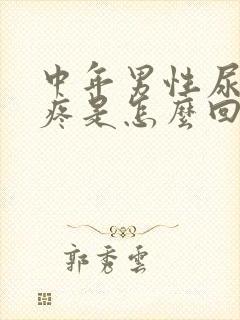 中年男性尿
疼是怎麼回
郭秀雲